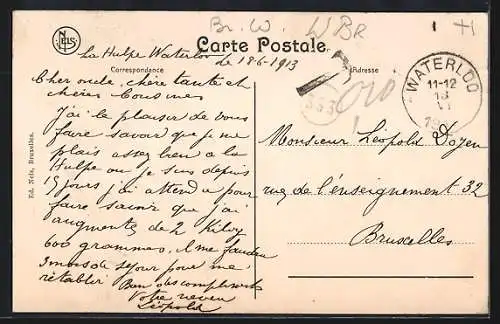 Br. W. WBR
NELS
Carte Postale.
La Hulpe Waterloo le 18-6-1913
Correspondance
Adresse
Cher oncle, chère tante et
chères Cousines
J'ai le plaisir de vous
faire savoir que je me
plais assez bien a la
Hulpe ou je suis depuis
15 jours j'ai attendu pour
faire savoir que j'ai
augmenté de 2 Kilog
600 grammes, il me faudra
3 mois de séjour pour me
rétablir Bien des compliments
Votre neveu
Léopold
WATERLOO
11-12
18
VI
Monsieur Léopold Doyen
rue de l'enseignement 32
Bruxelles
Ed. Nels, Bruxelles.